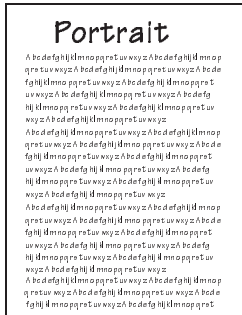 Portrait
Abcdefghijklmnopqrstuvwxyz Abcdefghijklmnop
qrstuvwxyz Abcdefghijklmnopqrstuvwxyz Abcde
fghijklmnopqrstuvwxyz Abcdefghijklmnopqrst
uvwxyz Abcdefghijklmnopqrstuvwxyz Abcdefg
hijklmnopqrstuvwxyz Abcdefghijklmnopqrstuv
wxyz Abcdefghijklmnopqrstuvwxyz
Abcdefghijklmnopqrstuvwxyz Abcdefghijklmnop
qrstuvwxyz Abcdefghijklmnopqrstuvwxyz Abcde
fghijklmnopqrstuvwxyz Abcdefghijklmnopqrst
uvwxyz Abcdefghijklmnopqrstuvwxyz Abcdefg
hijklmnopqrstuvwxyz Abcdefghijklmnopqrstuv
wxyz Abcdefghijklmnopqrstuvwxyz
Abcdefghijklmnopqrstuvwxyz Abcdefghijklmnop
qrstuvwxyz Abcdefghijklmnopqrstuvwxyz Abcde
fghijklmnopqrstuvwxyz Abcdefghijklmnopqrst
uvwxyz Abcdefghijklmnopqrstuvwxyz Abcdefg
hijklmnopqrstuvwxyz Abcdefghijklmnopqrstuv
wxyz Abcdefghijklmnopqrstuvwxyz
Abcdefghijklmnopqrstuvwxyz Abcdefghijklmnop
qrstuvwxyz Abcdefghijklmnopqrstuvwxyz Abcde
fghijklmnopqrstuvwxyz Abcdefghijklmnopqrst